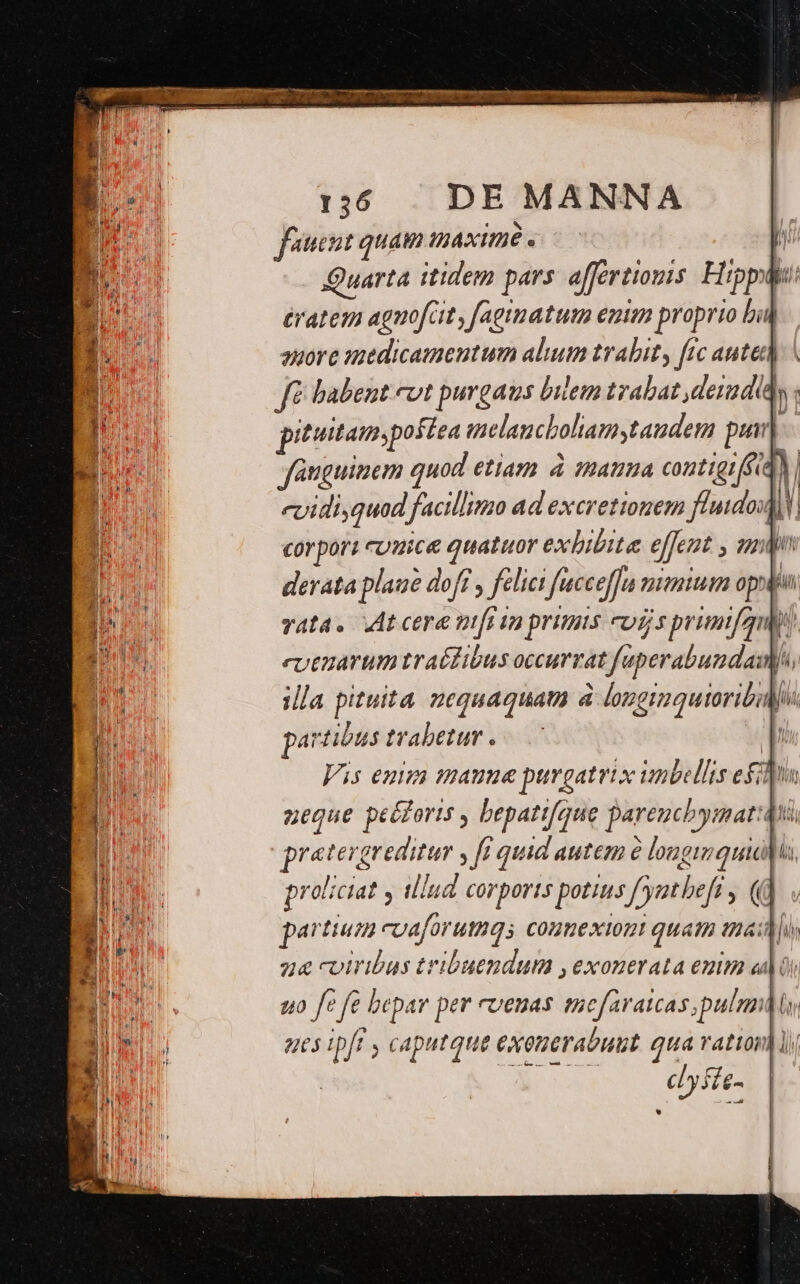 136 DE MANNA
fauent quam maximè.
Quarta itidem pars assertionis Hippo
cratem agnoscit, saginatum enim proprio hu
more medicamentum alium trahit, sic autem
se habent vt purgans bilem trahat, deinde
pituitam, postea melancholiam, tandem
sanguinem quod etiam à manna contigisse
vidi, quod facillimo ad excretionem fluido
corpori vnicæ quatuor exhibitæ essent,
derata planè dosi, felici successu nimium
rata. At ceræ nisi in primis vijs primisque
venarum tractibus occurrat superabundans
illa pituita nequaquam à longinquioribus
partibus trahetur.
Vis enim mannæ purgatrix imbellis est
neque pectoris, hepatisque parenchymat
prætergreditur, si quid autem è longinquio
proliciat, illud corporis potius synthesi, &
partium vasorumq; connexioni quam man
næ viribus tribuendum, exonerata enim al
uo se se hepar per venas mesaraicas, pulmo
nes ipsi, caputque exonerabunt qua ration
clyste-